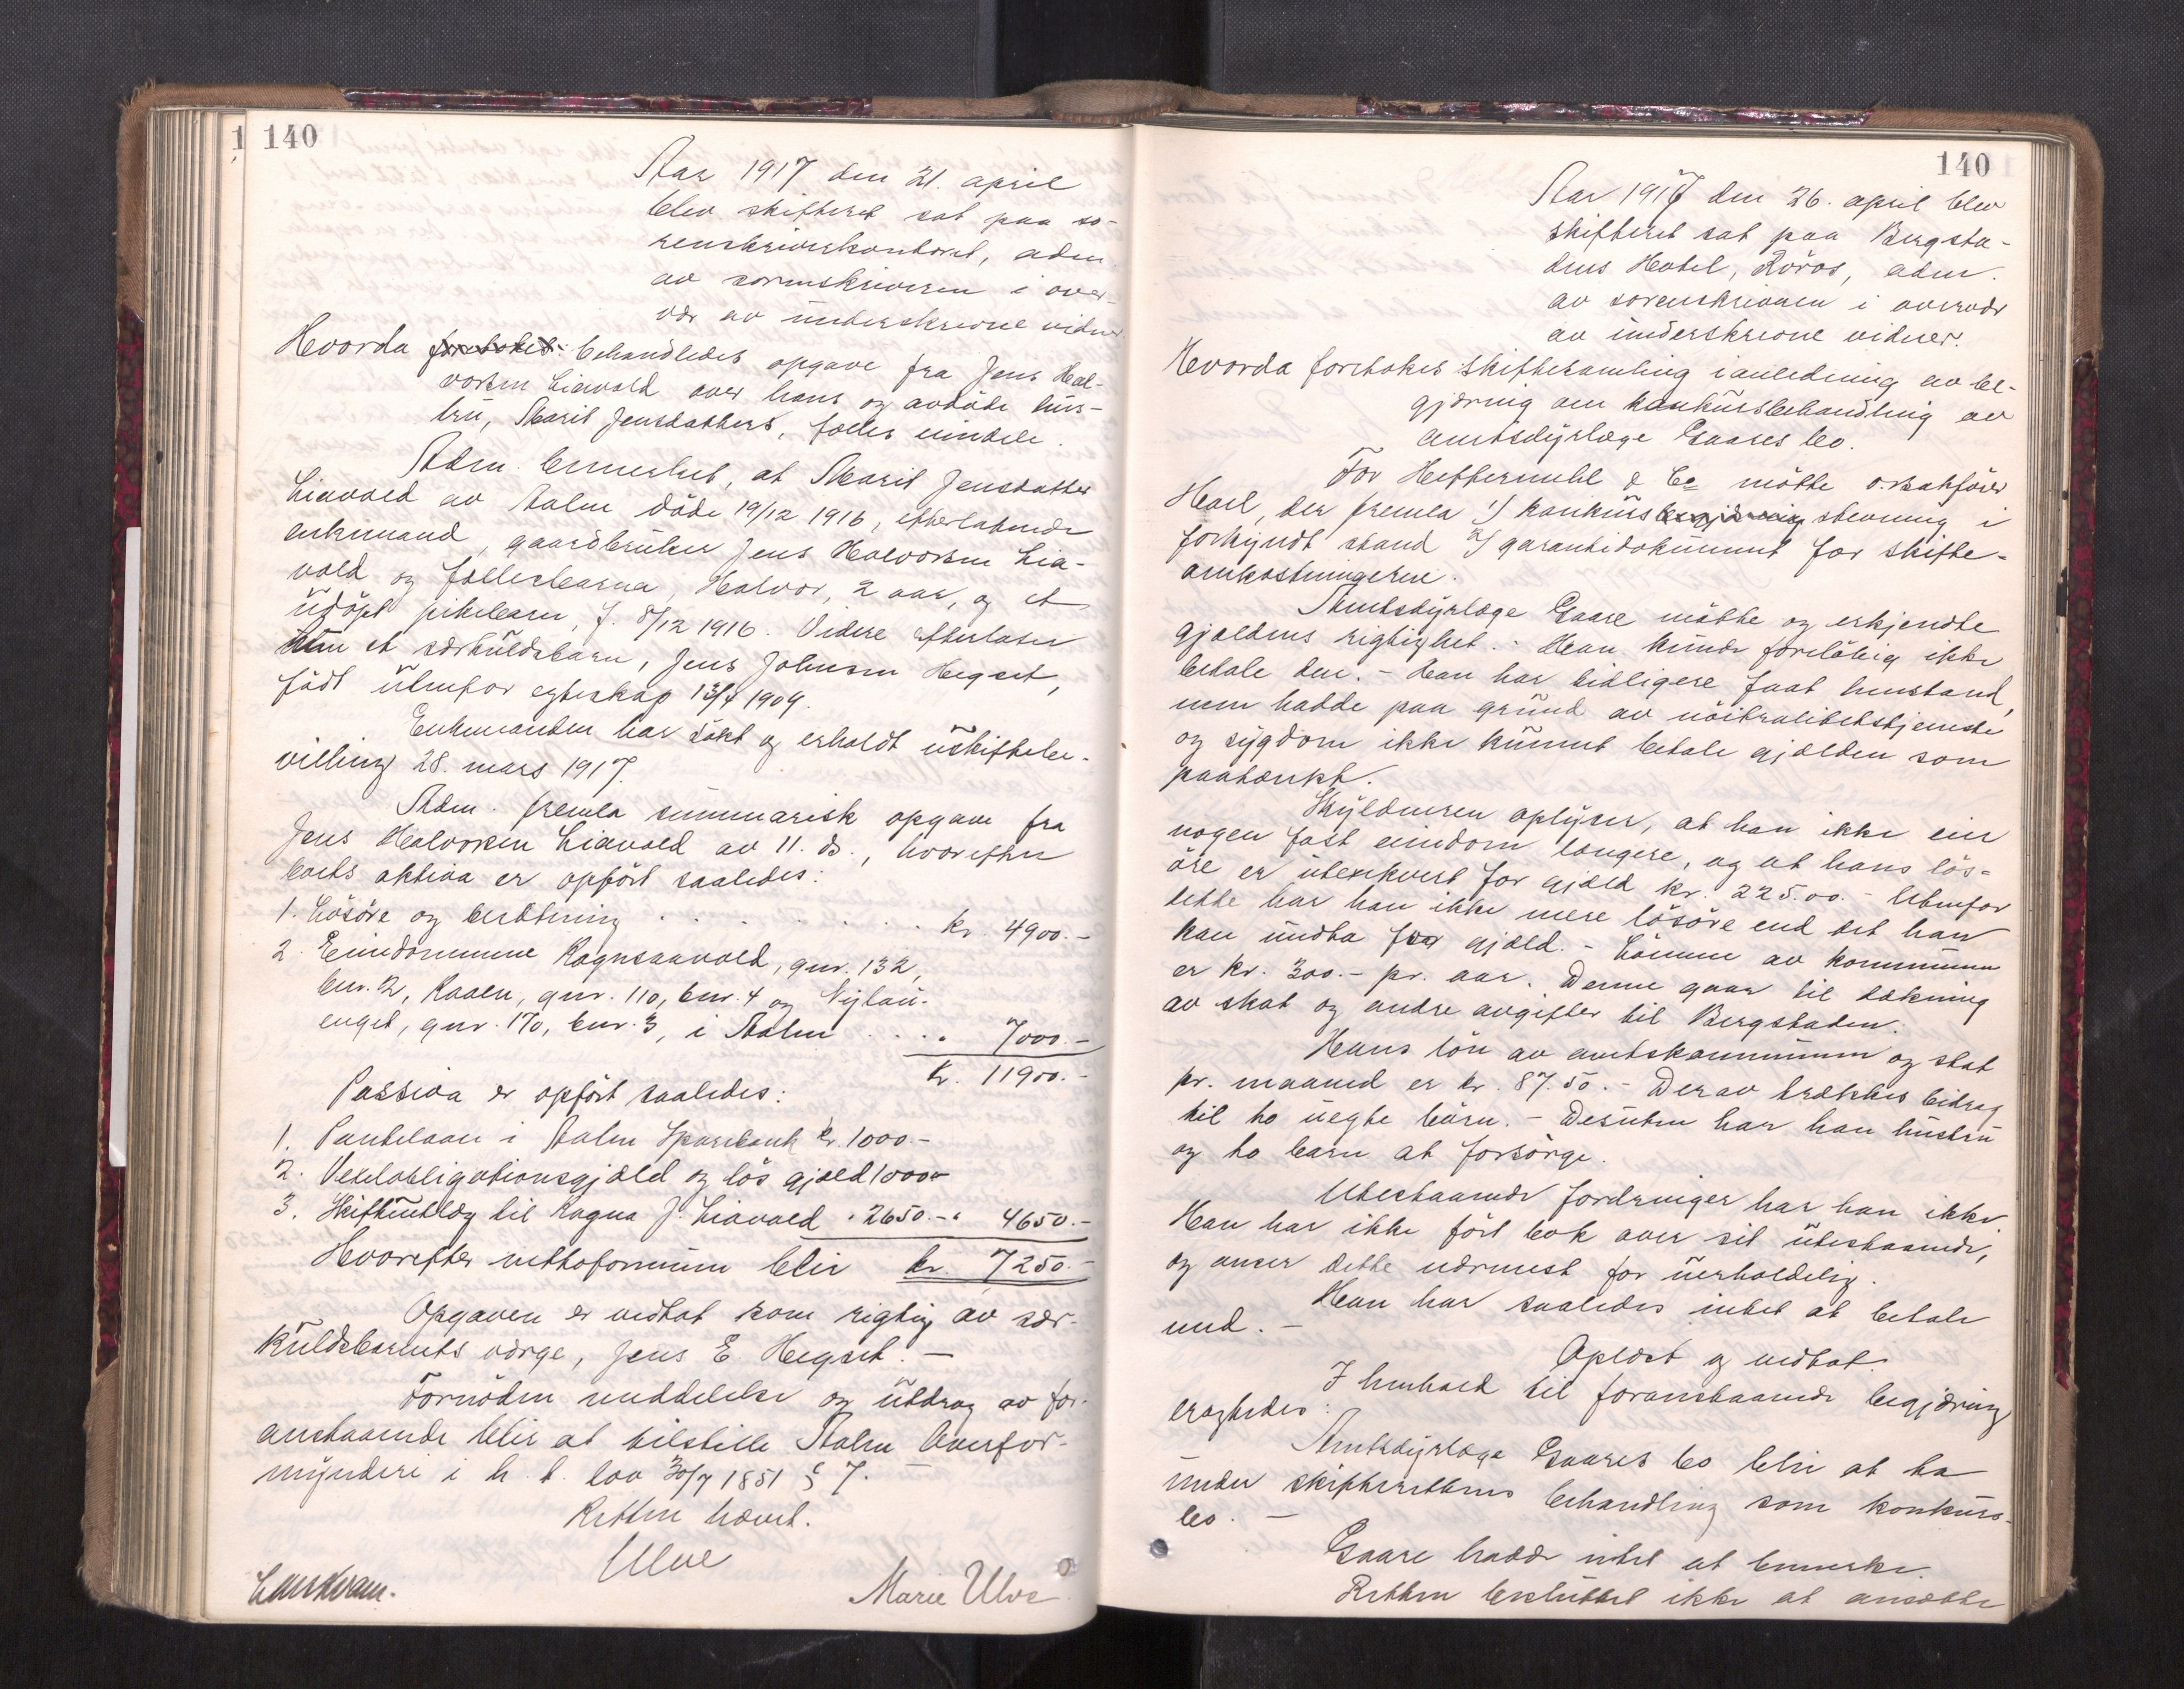 140
Aar 1917 den 21. april
blev skifteret sat paa so-
renskriverkontoret, adm
av sorenskriveren i over-
vær av underskrevne vidner.
Hvorda foretokes behandledes opgave fra Jens Hal-
vorsen Liavold over hans og avdöde hus-
tru, Marit Jensdatters, fælles eiendele.
Adm. bemerket, at Marit Jensdatter
Liavold av Aalen döde 19/12 1916, efterlatende
enkemand, gaardbruker Jens Halvorsen Lia-
vold og fællesbarna, Halvor, 2 aar, og et
udöpt pikebarn, f. 8/12 1916. Videre efterlater
hun et særkuldsbarn, Jens Johnsen Hegset,
födt utenfor egteskap 13/4 1909.
Enkemanden har sökt og erholdt uskiftebe-
villing 28. mars 1917.
Adm. fremla summarisk opgave fra
Jens Halvorsen Liavold av 11. ds., hvorefter
boets aktiva er opfört saaledes:
1. Lösöre og besætning . . . . . . . . kr. 4900.-
2. Eiendommene Ragnsaavold, gnr. 132,
bnr. 2, Raaen, gnr. 110, bnr. 4 og Nylau-
enget, gnr. 170, bnr. 3, i Aalen . . . . 7000.-
Kr. 11900.-
Passiva er opfört saaledes:
1. Pantelaan i Aalen Sparebank kr. 1000.-
2. Vexelobligationsgjæld og lös gjæld 1000.-
3. Skifteutlæg til Ragna J. Liavold " 2650.- " 4650.-
Hvorefter nettoformuen blir kr. 7250.-
Opgaven er vedtat som rigtig av sær-
kuldsbarnets værge, Jens E. Hegset. -
Fornöden meddelelse og utdrag av for-
anstaaende blir at tilstille Aalen Overfor-
mynderi i h. t. lov 30/7 1851 § 7.
Retten hævet.
Ulve
Marie Ulve
140
Aar 1917 den 26. april blev
skifteret sat paa Bergsta-
dens Hotel, Röros, adm.
av sorenskriveren i overvær
av underskrevne vidner.
Hvorda foretokes skiftesamling i anledning av be-
gjæring om konkursbehandling av
amtsdyrlæge Gaares bo.
For Heftermehl & Co mötte o.r.sakförer
Hoel, der fremla 1) konkursbegjæring stevning i
forkyndt stand 2) garantidokument for skifte-
omkostningerne.
Amtsdyrlæge Gaare mötte og erkjendte
gjældens rigtighet. - Han kunde forelöbig ikke
betale den. - Han har tidligere faat henstand,
men hadde paa grund av nöitralitetstjeneste
og sygdom ikke kunnet betale gjælden som
paatænkt.
Skyldneren oplyser, at han ikke eier
nogen fast eiendom længere, og at hans lös-
öre er utexekvert for gjæld kr. 225.00. - Utenfor
dette har han ikke mere lösöre end det han
kan undta for gjæld. - Lönnen av kommunen
er kr. 300.- pr. aar. Denne gaar til dækning
av skat og andre avgifter til Bergstaden.
Hans lön av amtskommunen og stat
pr. maaned er kr. 87.50. - Derav trækkes bidrag
til to uegte börn. - Desuten har han hustru
og to barn at forsörge.
Utestaaende fordringer har han ikke.
Han har ikke fört bok over sit utestaaende,
og anser dette nærmest for uerholdelig.
Han har saaledes intet at betale
med. -
Oplæst og vedtat.
I henhold til foranstaaende begjæring
eragtedes:
Amtsdyrlæge Gaares bo blir at ta
under skifterettens behandling som konkurs-
bo. -
Gaare hadde intet at bemerke.
Retten besluttet ikke at ansætte